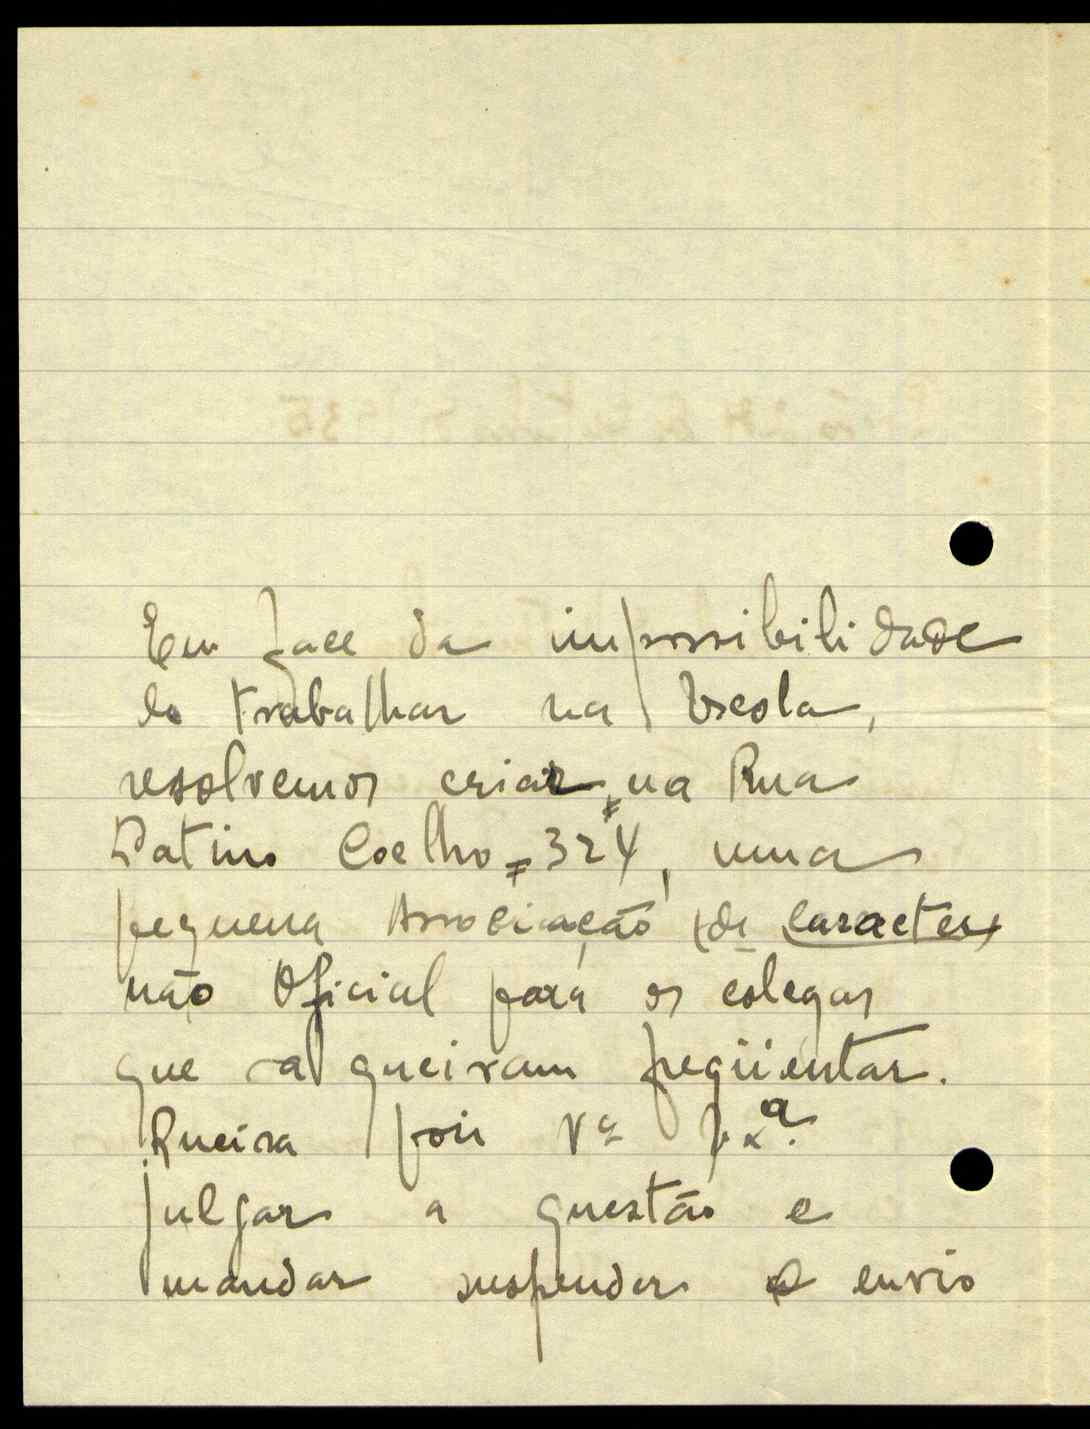 Em face da impossibilidade
de trabalhar na Escola,
resolvemos criar, na Rua
Latino Coelho = 324, uma
pequena Associação (de caracter)
não Oficial para os colegas
que a queiram freqüentar.
Queira pois Vª Exª.
julgar a questão e
mandar suspender o envio